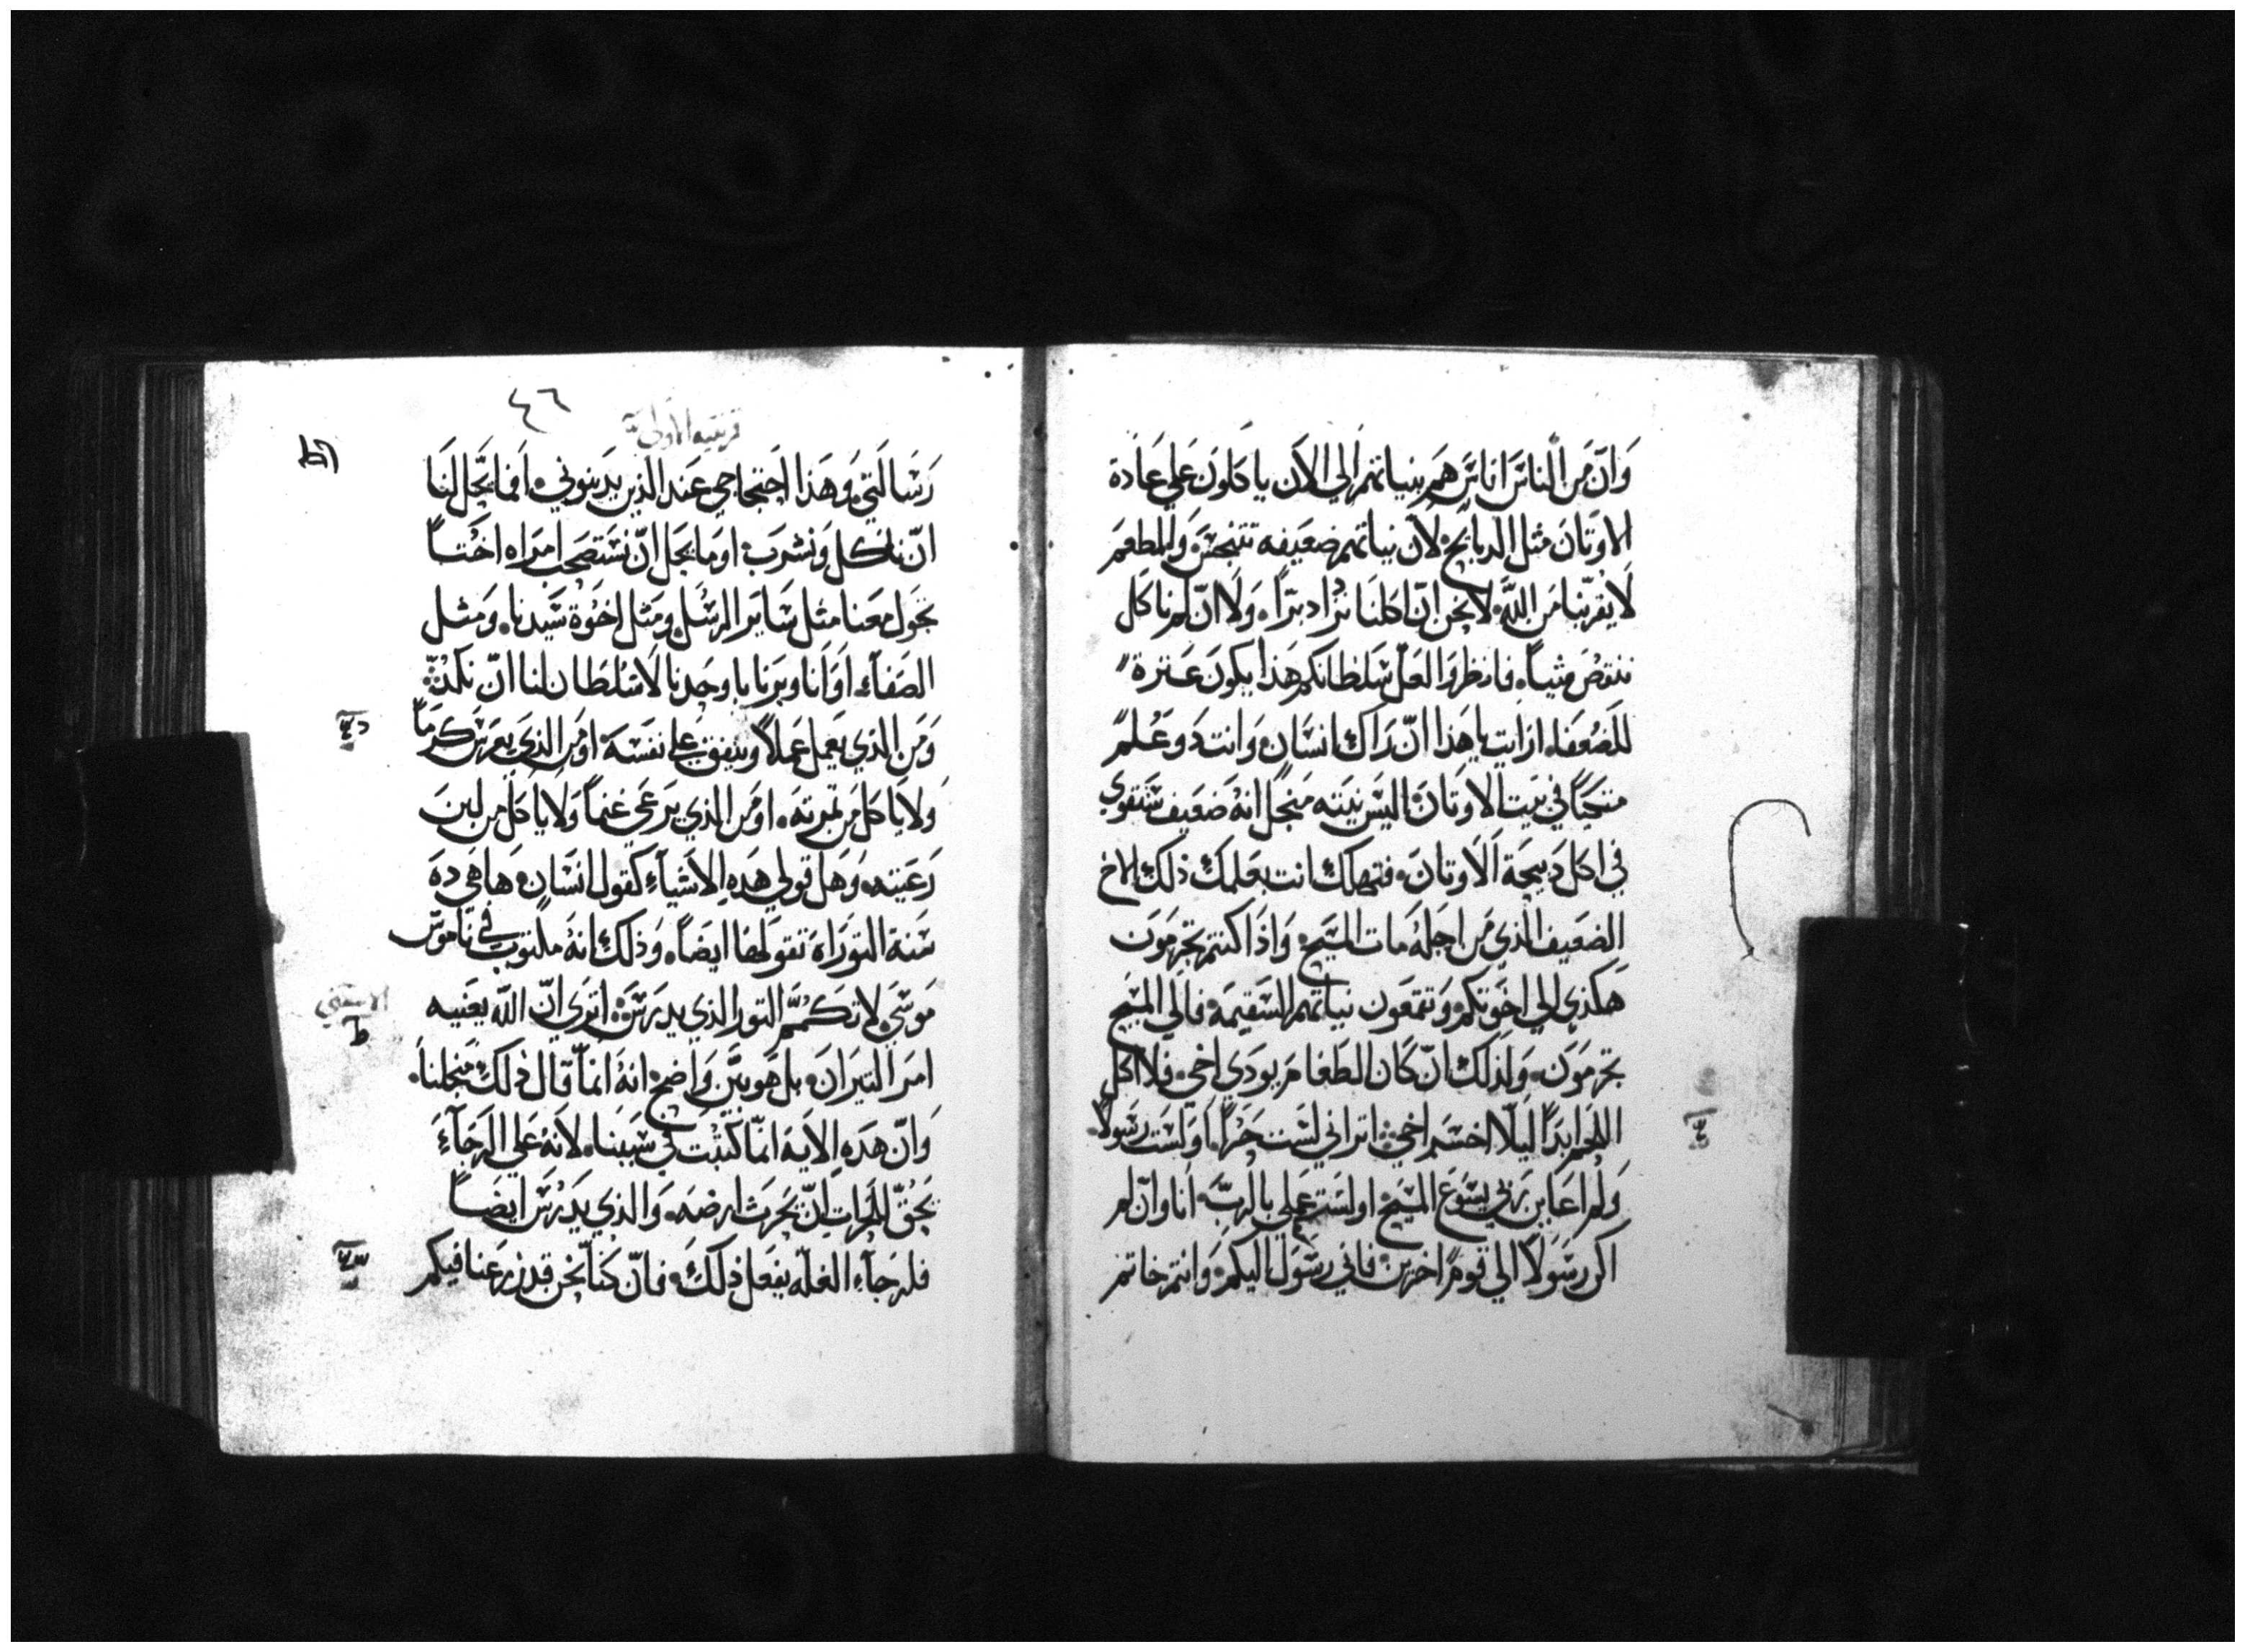 وَانّ مَن الناسَ اناسَ هَم بنياتهم الي الآن ياكلونَ علي عَادة
الاوثان مثل الدبايح لان نياتهم ضعيفه تتنجسَ والمطعَم
لا يقربنا من اللَّه لا نحن انّ اكلنا نزاد برّاً ولا انّ لم ناكل
ننقصُ شياً فانظروا لعل سَلطانكم هَذا يكونَ عَثرة
للضُعَفاء ارايت يا هَذا انّ رَاك انسَان وَانت دو عَلم
متكياً في بيت الاوثان اليسَ نيته منجل انهُ ضعَيف ستقوي
في اكل دبيحة الاوثان فتهلك انت بعَلمك ذلك الاخ
الضعَيف الذي من اجلهُ مات المسَيح وَاذا كنتم تجرَمون
هَكذي الي اخَوتكم وَتقمعَون نياتهم السَقيمَة فالي المسَيح
تجرمَونَ وَلذلك انّ كان الطعَام يودي اخي فلا اكل
اللحَم ابداً ليلاّ اخسَر اخي اتراني لسَت حَراً اوَلسَت رسَولاً
وَلم اعَاين رَبّي يسَوع المسَيح اولسَتم عَملي بالربّ انا وانّ لم
اكن رسَولاً الي قوم اخرين فاني رسَول اليكم وَانتم خاتم
٤٦
قرنتيه الاولي
رَسَالتي وَهَذا احَتجاجي عَند الذين يدَينوني افما يحَل لنا
انّ ناكل وَنشرَب اومَا يحَل انّ نسَتصحَب امرَاه اختاً
تجول معنا مثل سَاير الرسَل ومَثل اخوة سَيدنا وَمثل
الصَفاء اوَانا وبَرنابا وحَدنا لا سُلطان لنا انّ نكدّ
وَمَن الذي يعَمل عَملاً وينفق علي نفسَه اومَن الذي يغرَسَ كرماً
ولا ياكل من تمرته اومَن الذي يرعَي غنماً ولا ياكل من لبن
رَعَيته وَهل قولي هَذه الاشياء كقول انسَان هَا هَي ده
سَنة التورَاة تقول هَذا ايضَاً وَذلك انهُ مكتوب في نامَوس
مَوسَي لا تكمّ التور الذي يدرَسَ اترَي انّ اللّه يعَنيه
امرَ التيرَان بل هَو بيّن وَاضح انهُ انماّ قال ذلك منجلنا
وَانّ هَذه الايه انمّا كتبت في سَببنا لانهُ عَلي الرجَاء
يحَقّ للحَرات انّ يحَرث ارضَه وَالذي يدَرسَ ايضَاً
فلرجَاء الغله يفعَل ذلكَ فانّ كناّ نحن قد زرعَنا فيكم